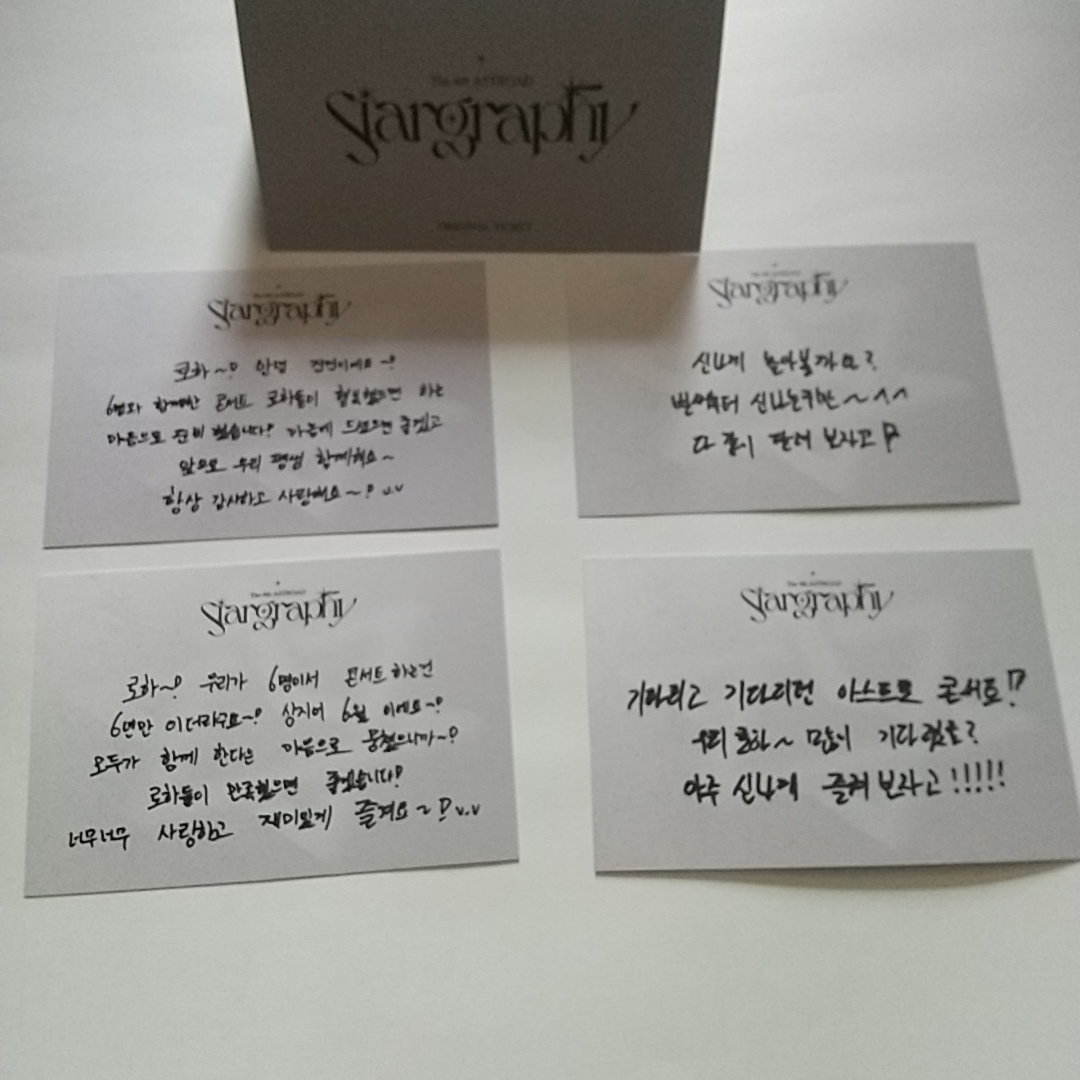 The 4th ASTROAD
Stargraphy
ORIGINAL TICKET
The 4th ASTROAD
Stargraphy
로하~!
6명과 함께한 콘서트 로하들이 했으면 하는
마음으로 준비 했습니다! 마음에 드셨으면 좋겠고
앞으로 우리 평생 함께해요~
항상 감사하고 사랑해요~! v.v
The 4th ASTROAD
Stargraphy
신나게 놀아볼까요?
신나는구만~^^
다 같이 달려 보자고!?
The 4th ASTROAD
Stargraphy
로하~! 우리가 6명이서 콘서트 하는건
6년만 이더라구요~! 심지어 6월 이에요~!
모두가 함께 한다는 마음으로 뭉쳤으니까~!
로하들이 만족했으면 좋겠습니다!
너무너무 사랑하고 재미있게 즐겨요~! v.v
The 4th ASTROAD
Stargraphy
기다리고 기다리던 아스트로 콘서트!?
우리 로하~ 많이 기다렸죠?
아주 신나게 즐겨보자고!!!!!